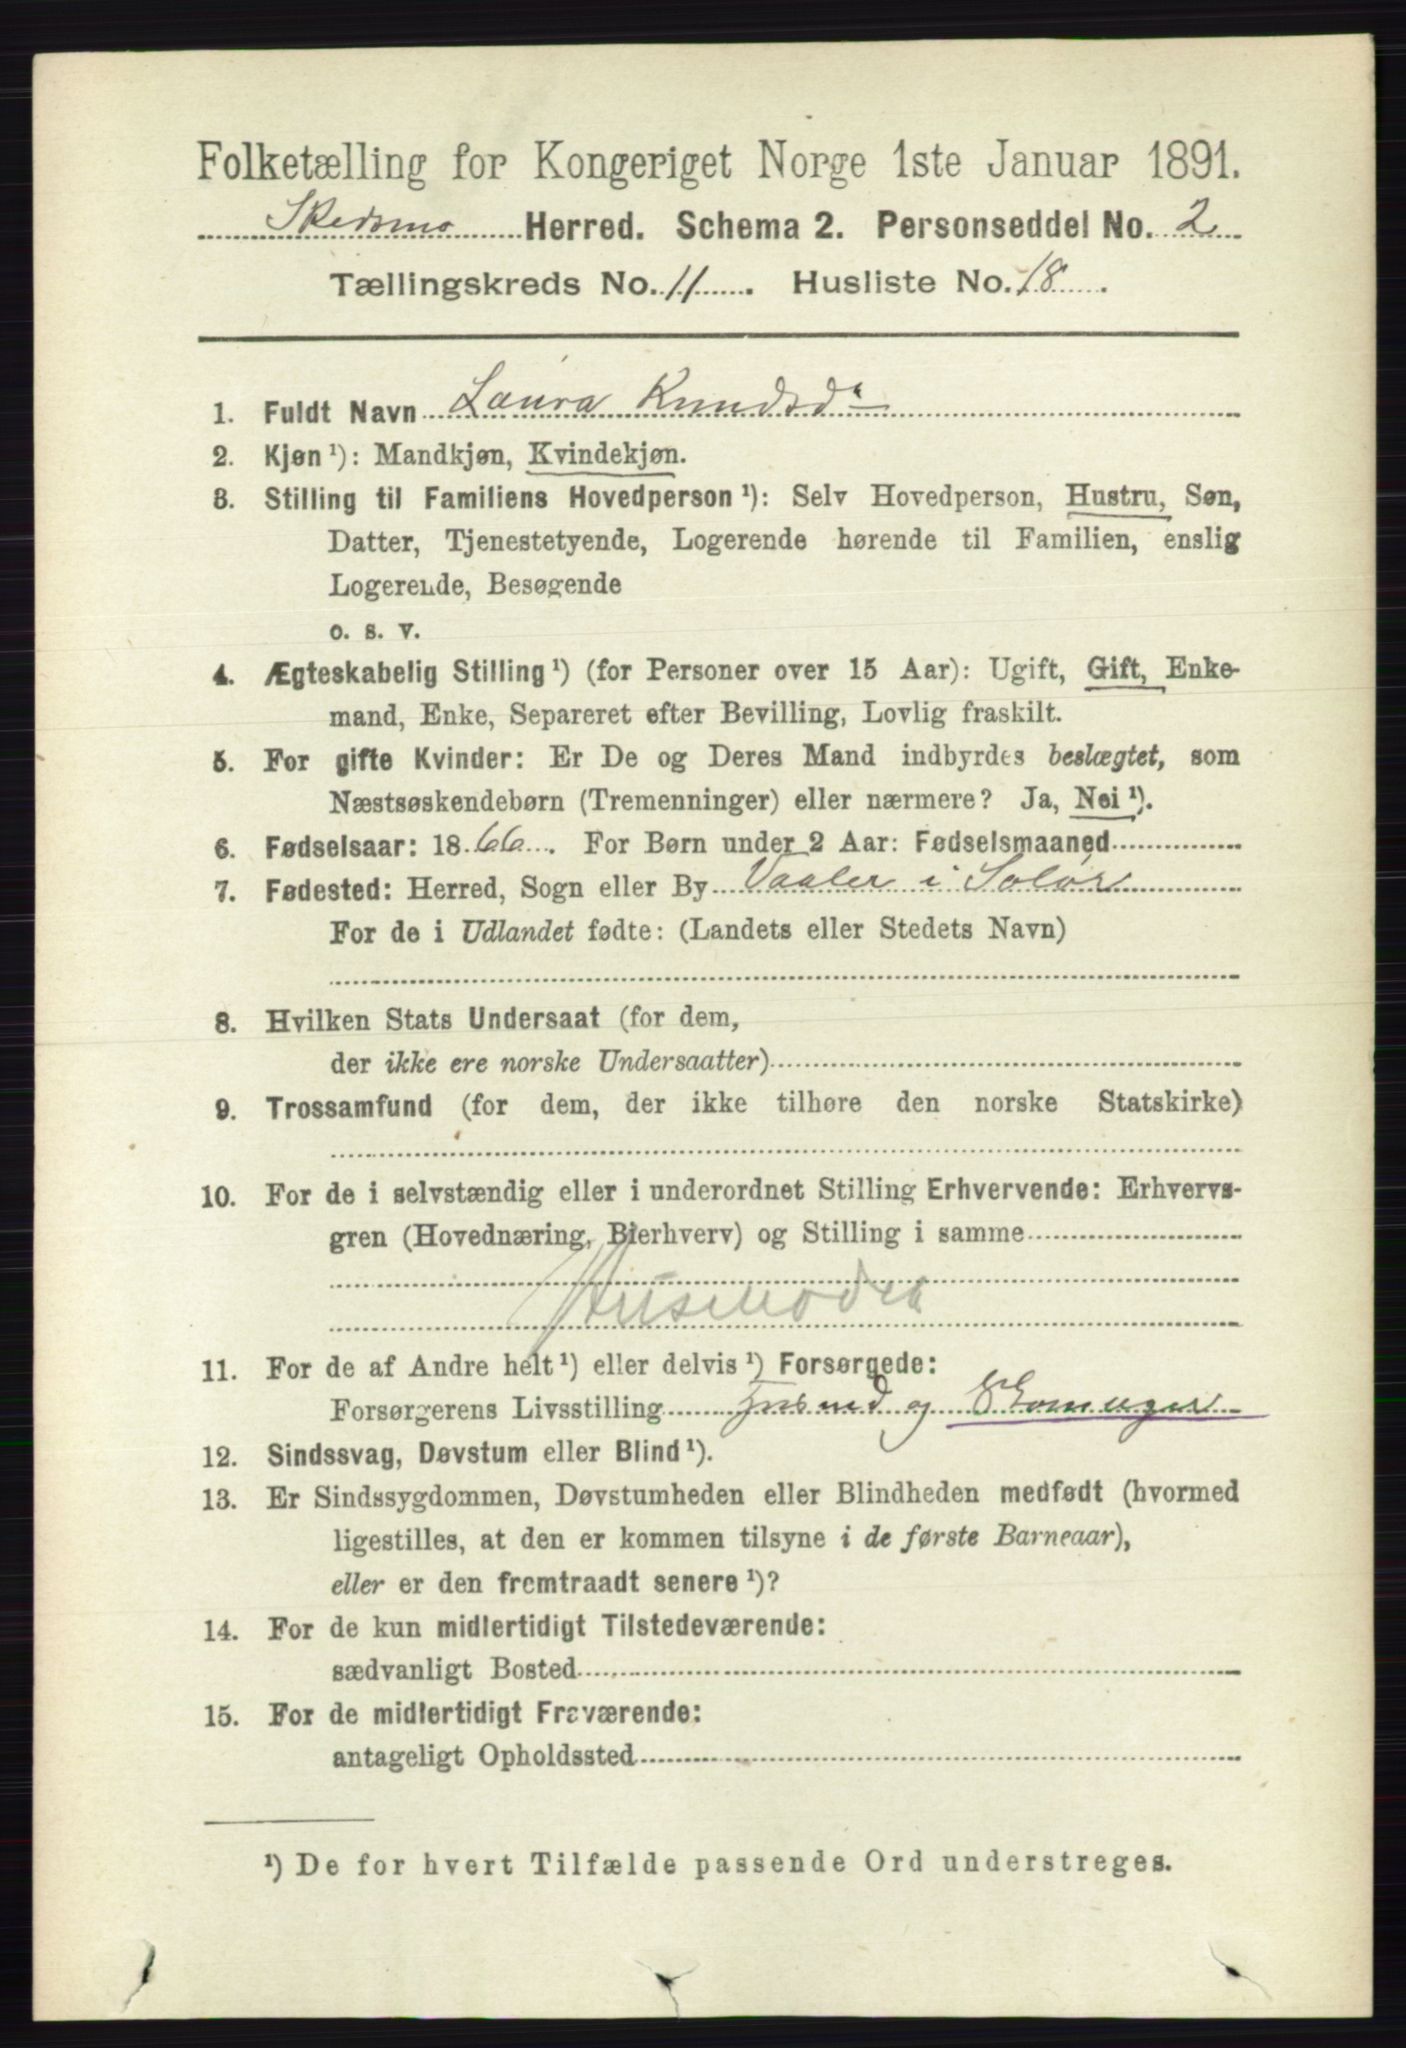 Folketælling for Kongeriget Norge 1ste Januar 1891.
Skedsmo Herred. Schema 2. Personseddel No. 2
Tællingskreds No. 11. Husliste No. 18.
1. Fuldt Navn Laura Knudsdr
2. Kjøn ¹): Mandkjøn, Kvindekjøn.
3. Stilling til Familiens Hovedperson ¹): Selv Hovedperson, Hustru, Søn,
Datter, Tjenestetyende, Logerende hørende til Familien, enslig
Logerende, Besøgende
o. s. v.
4. Ægteskabelig Stilling ¹) (for Personer over 15 Aar): Ugift, Gift, Enke-
mand, Enke, Separeret efter Bevilling, Lovlig fraskilt.
5. For gifte Kvinder: Er De og Deres Mand indbyrdes beslægtet, som
Næstsøskendebørn (Tremenninger) eller nærmere? Ja, Nei ¹).
6. Fødselsaar: 1866. For Børn under 2 Aar: Fødselsmaaned
7. Fødested: Herred, Sogn eller By Vaaler i Solør
For de i Udlandet fødte: (Landets eller Stedets Navn)
8. Hvilken Stats Undersaat (for dem,
der ikke ere norske Undersaatter)
9. Trossamfund (for dem, der ikke tilhøre den norske Statskirke)
10. For de i selvstændig eller i underordnet Stilling Erhvervende: Erhvervs-
gren (Hovednæring, Bierhverv) og Stilling i samme
Husmoder
11. For de af Andre helt ¹) eller delvis ¹) Forsørgede:
Forsørgerens Livsstilling Husmd og Skomager
12. Sindssvag, Døvstum eller Blind ¹).
13. Er Sindssygdommen, Døvstumheden eller Blindheden medfødt (hvormed
ligestilles, at den er kommen tilsyne i de første Barneaar),
eller er den fremtraadt senere ¹)?
14. For de kun midlertidigt Tilstedeværende:
sædvanligt Bosted
15. For de midlertidigt Fraværende:
antageligt Opholdssted
¹) De for hvert Tilfælde passende Ord understreges.